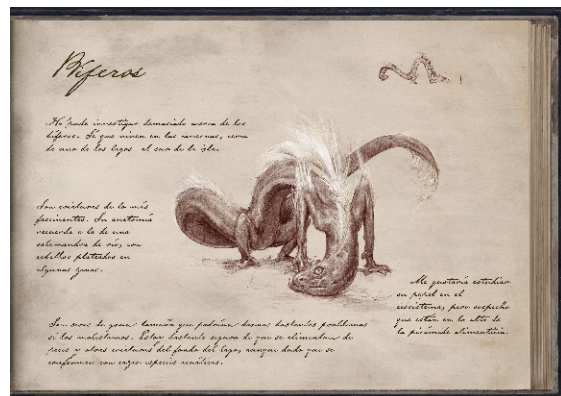 Bíferos
No pude investigar demasiado acerca de los
bíferos. Sé que viven en las cavernas, cerca
de uno de los lagos al sur de la isla.
Son criaturas de lo más
fascinantes. Su anatomía
recuerda a la de una
salamandra de río, con
cabellos plateados en
algunas zonas.
Me gustaría estudiar
su papel en el
ecosistema, pero sospecho
que están en lo alto de
la pirámide alimenticia.
Son seres de gran tamaño que podrían darnos bastantes problemas
si los molestamos. Estoy bastante seguro de que se alimentan de
peces y otras criaturas del fondo del lago, aunque dudo que se
conformen con especies